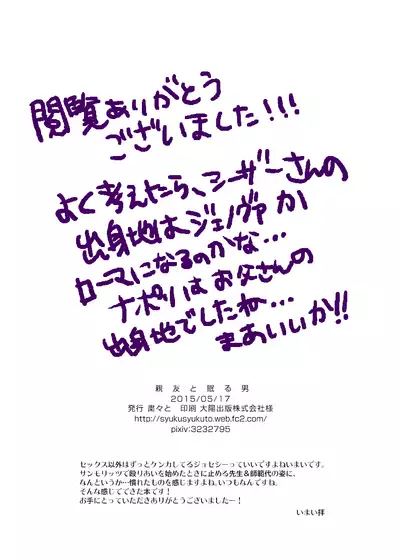 閲覧ありがとう
ございました!!!
よく考えたら、シーザーさんの
出身地はジェノヴァか
ローマになるのかな…
ナポリはお父さんの
出身地でしたね…
まあいいか!!
親友と眠る男
2015/05/17
発行 粛々と 印刷 大陽出版株式会社様
http://syukusyukuto.web.fc2.com/
pixiv:3232795
セックス以外はずっとケンカしてるジョセシーっていいですよねいまいです。
サンモリッツで殴り合いを始めたときに止める先生&師範代の姿に、
なんというか…慣れたものを感じますよね。いつもなんですね。
そんな感じでできた本です!
お手にとっていただきありがとうございましたー!
いまい拝